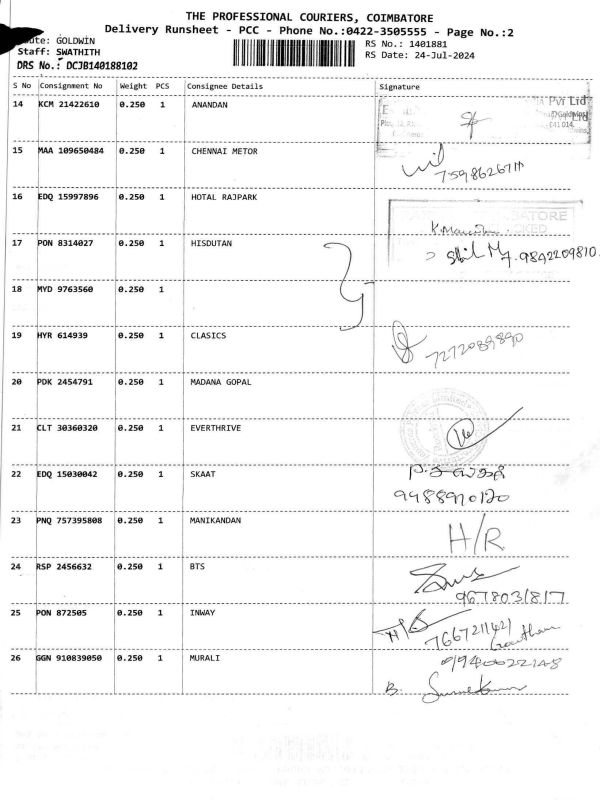 THE PROFESSIONAL COURIERS, COIMBATORE
Delivery Runsheet - PCC - Phone No.:0422-3505555 - Page No.:2
GOLDWIN
RS No.: 1401881
Staff: SWATHITH
RS Date: 24-Jul-2024
DRS No.: DCJB140188102
S No Consignment No Weight PCS Consignee Details Signature
14 KCM 21422610 0.250 1 ANANDAN
Pvt Ltd
15 MAA 109650484 0.250 1 CHENNAI METOR
16 EDQ 15997896 0.250 1 HOTAL RAJPARK
17 PON 8314027 0.250 1 HISDUTAN
9842209810
18 MYD 9763560 0.250 1
19 HYR 614939 0.250 1 CLASICS
7272089890
20 PDK 2454791 0.250 1 MADANA GOPAL
21 CLT 30360320 0.250 1 EVERTHRIVE
22 EDQ 15030042 0.250 1 SKAAT
23 PNQ 757395808 0.250 1 MANIKANDAN H/R
24 RSP 2456632 0.250 1 BTS
9678031817
25 PON 872505 0.250 1 INWAY
26 GGN 910839050 0.250 1 MURALI
B.